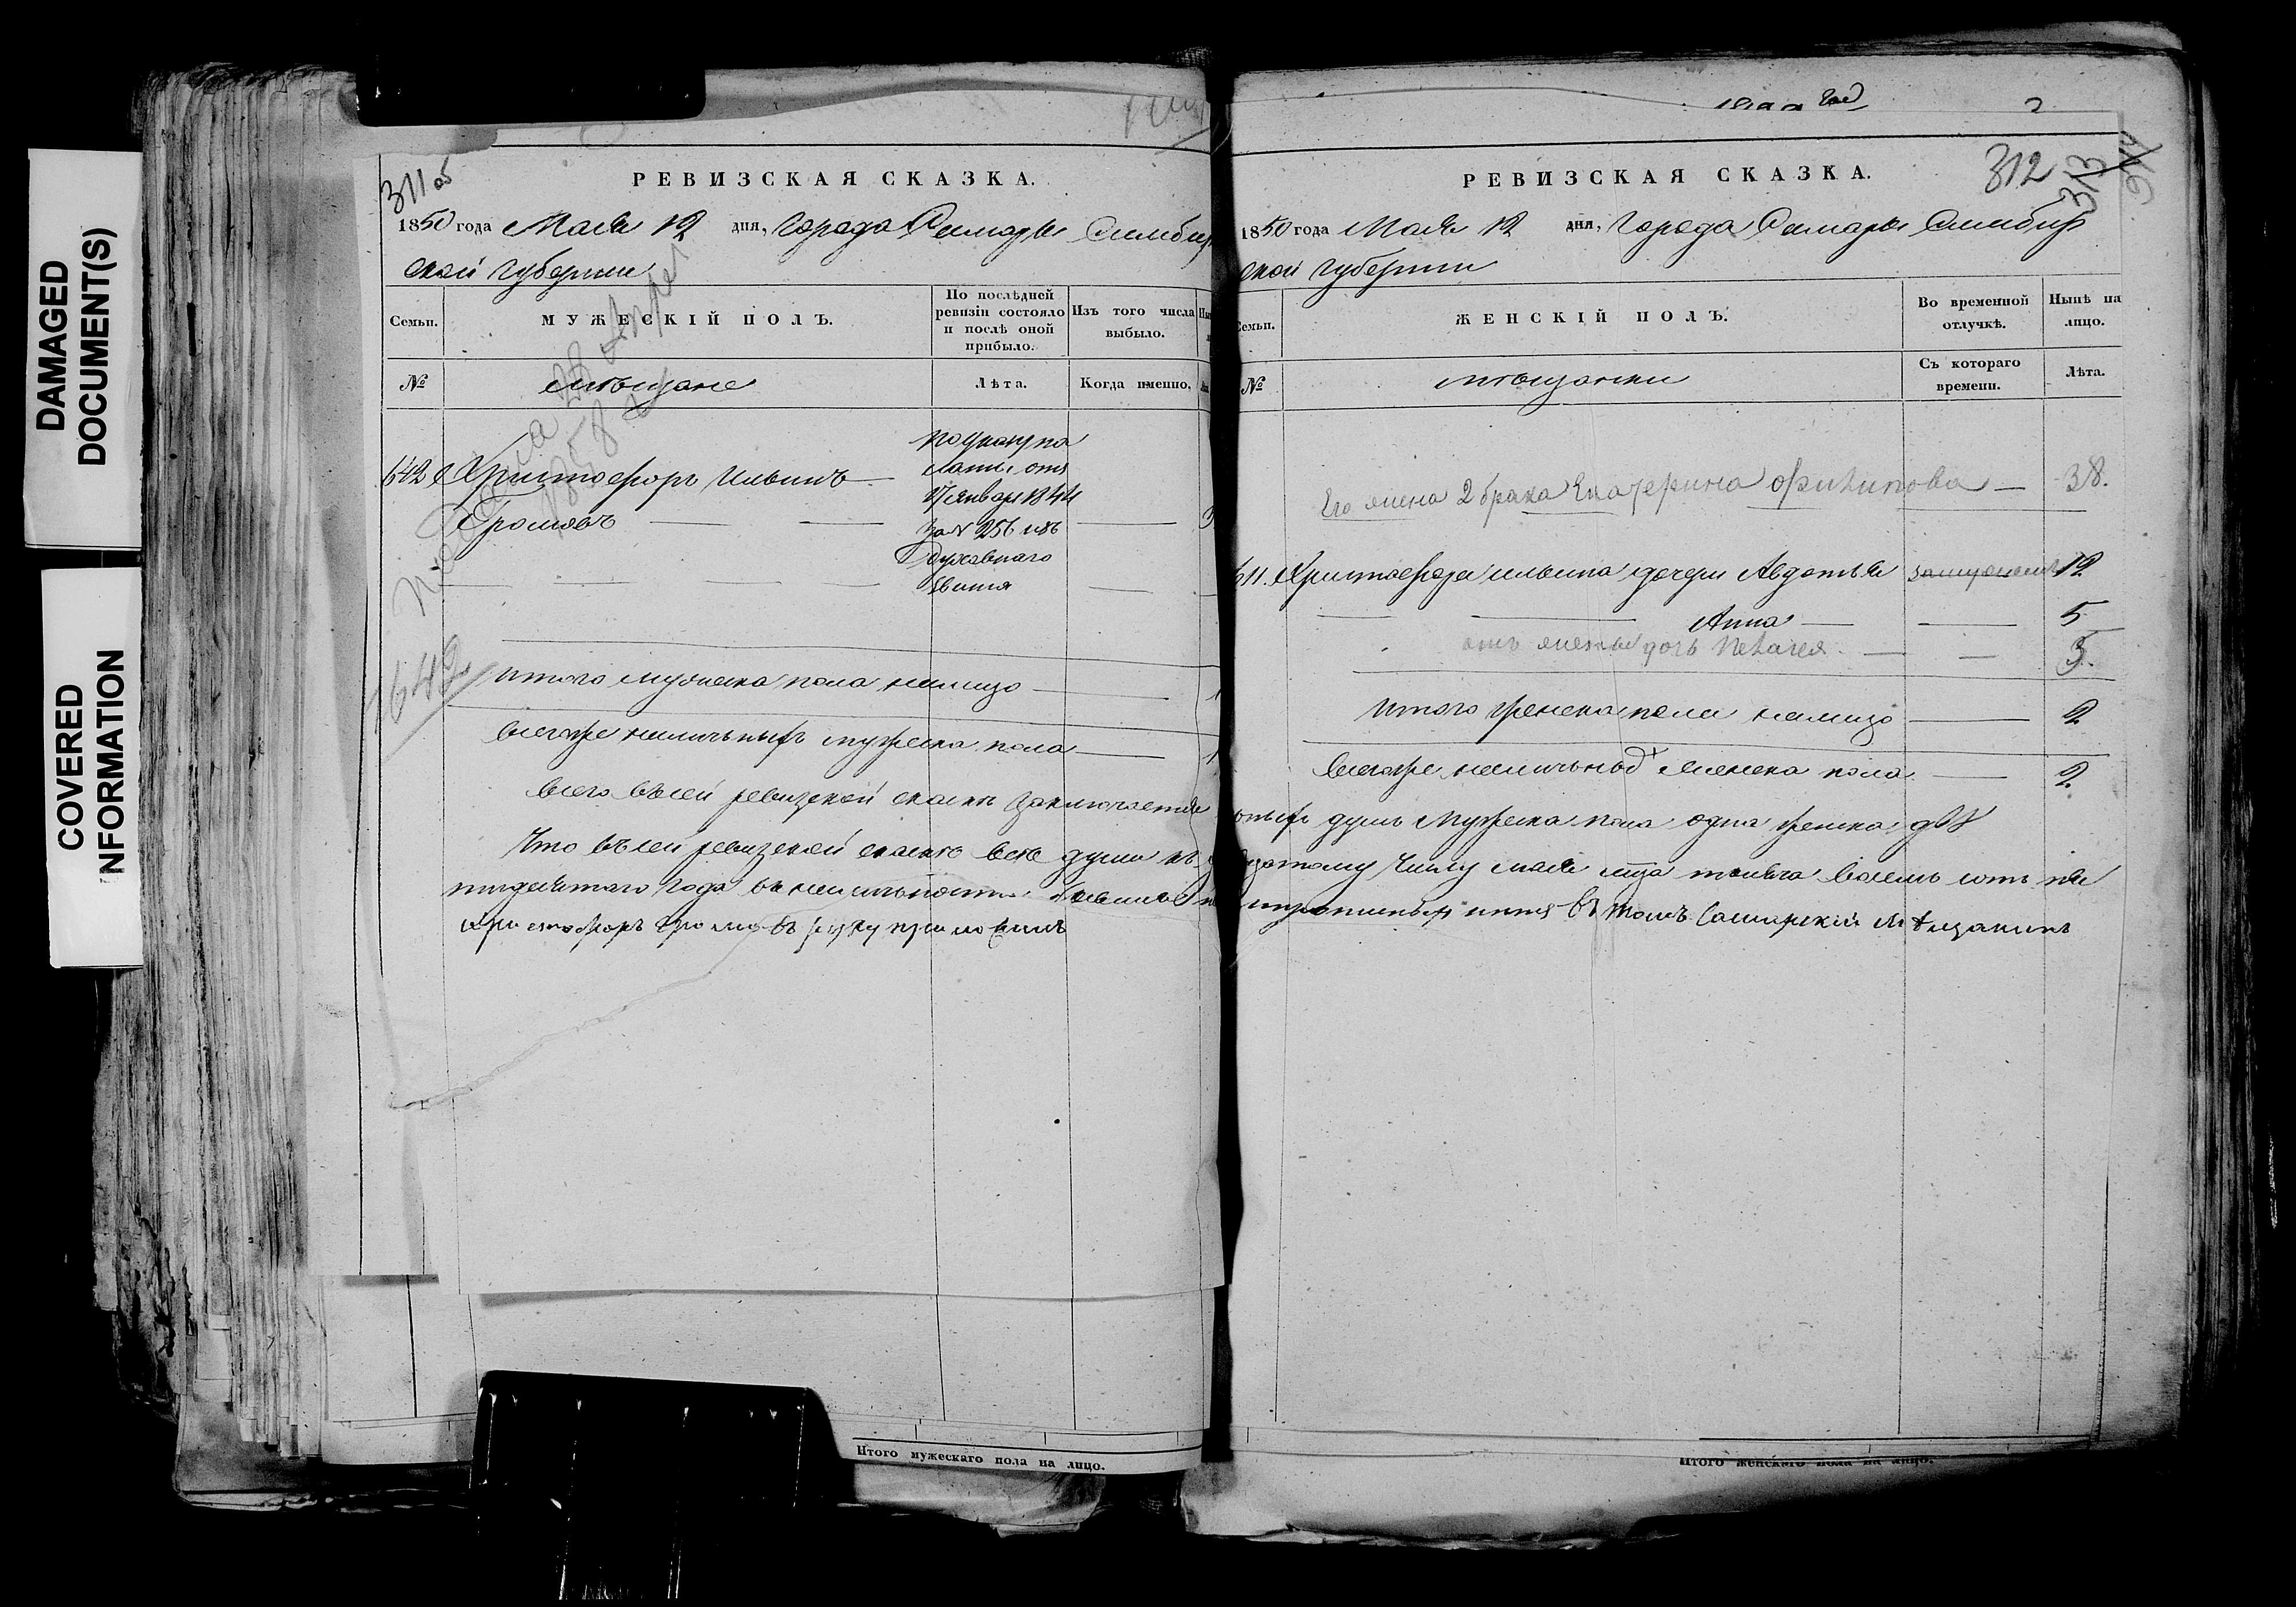 DAMAGED
DOCUMENT(S)
COVERED
NFORMATION
311 об
РЕВИЗСКАЯ СКАЗКА.
1850 года Маія 12 дня, города Самары Симбир
ской губерніи
Семьи.
МУЖЕСКІЙ ПОЛЪ.
По послѣдней
ревизіи состояло
и послѣ оной
прибыло.
Изъ того числа
выбыло.
№
мѣщане
Лѣта.
Когда именно.
1858
642 Христофоръ Ильинъ
Громовъ
по указу па
латы отъ
17 января 1844
за № 256 изъ
Духовнаго
642
итого мужеска пола налицо
всегоже наличныхъ мужеска пола
Всего в сей ревизской сказки заключается
Что в сей ревизской сказкѣ все души къ
пидесятаго года в наличности
христофоръ громовъ руку приложилъ
Итого мужескаго пола на лицо.
312
313
РЕВИЗСКАЯ СКАЗКА.
1850 года Маія 12 дня, города Самары Симбир
ской губерніи
Семьи.
ЖЕНСКІЙ ПОЛЪ.
Во временной
отлучкѣ.
Нынѣ на
лицо.
№
мѣщанки
Съ котораго
времени.
Лѣта.
Его жена 2 брака Екатерина Филипова 38.
Христофора ильина дочери Авдотья 12
Анна 5
дочь Пелагея 3.
Итого женска пола налицо 2
всегоже наличнод женска пола 2
душъ мужеска пола одна женска двѣ
числу маія мца тысяча восемь сотъ пя
в томъ Самарский мѣщанинъ
Итого женскаго пола на лицо.